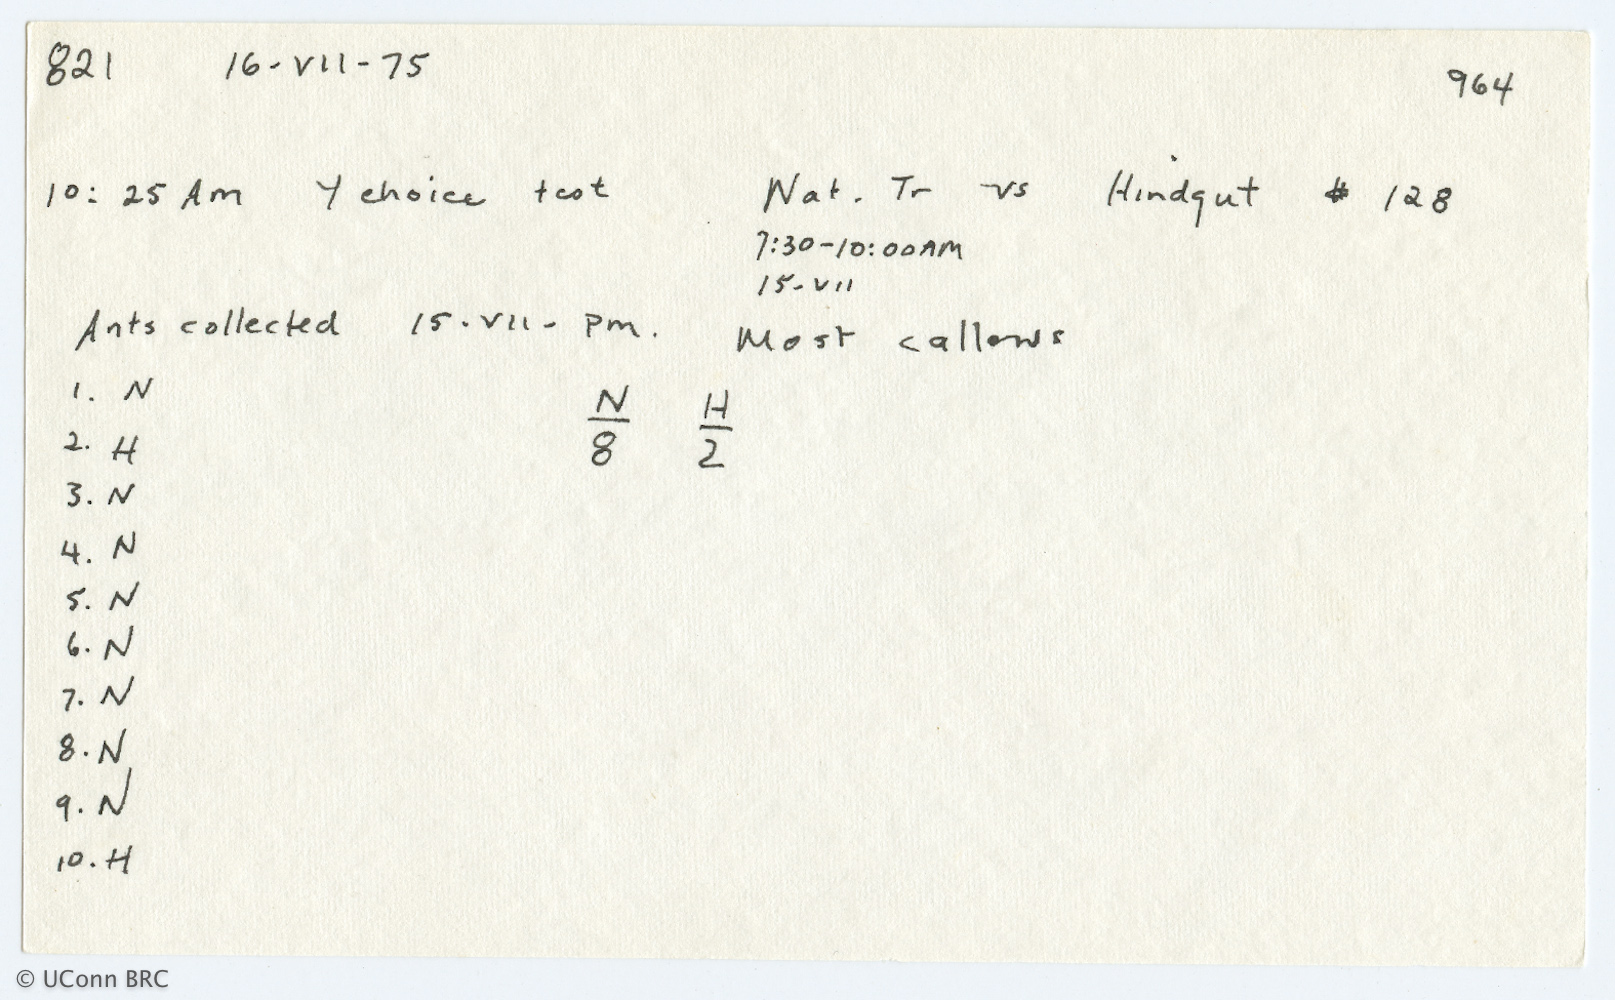 821 16-VII-75 964
10:25 Am Y choice test Nat. Tr vs Hindgut # 128
7:30-10:00AM
15-VII
Ants collected 15-VII- pm. Most callows
1. N
2. H
3. N
4. N
5. N
6. N
7. N
8. N
9. N
10. H
N H
8 2
© UConn BRC